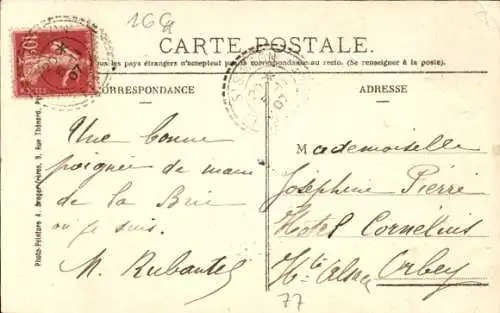 16G
CARTE POSTALE.
Tous les pays étrangers n'acceptent pas la correspondance au recto. (Se renseigner à la poste).
CORRESPONDANCE
ADRESSE
Une bonne
poignée de main
de la Brie
où je suis.
M. Rubantel
Mademoiselle
Joséphine Pierré
Hotel Cornélius
Hte Alsace Orbey
77
Photo-Peinture A. Breger Frères, 9, Rue Thénard,
10c
07
07